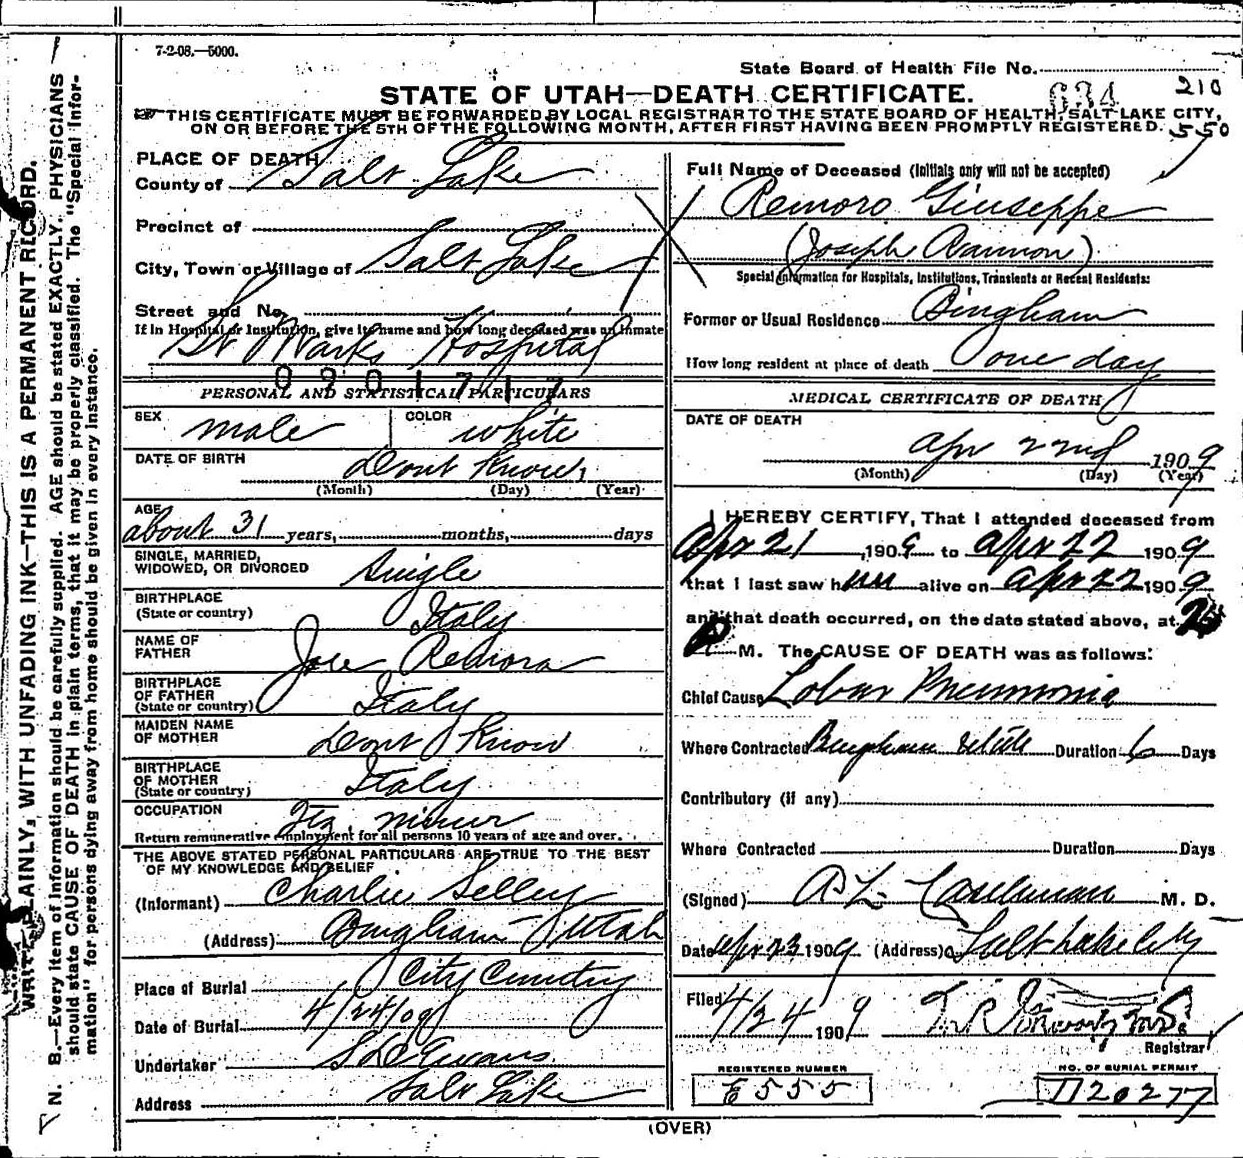 7-2-08.—5000.
State Board of Health File No.
634
210
STATE OF UTAH—DEATH CERTIFICATE.
THIS CERTIFICATE MUST BE FORWARDED BY LOCAL REGISTRAR TO THE STATE BOARD OF HEALTH, SALT LAKE CITY,
ON OR BEFORE THE 5TH OF THE FOLLOWING MONTH, AFTER FIRST HAVING BEEN PROMPTLY REGISTERED.
550
PLACE OF DEATH
County of Salt Lake
Precinct of
City, Town or Village of Salt Lake
Street and No.
If in Hospital or Institution, give its name and how long deceased was an inmate
St Marks Hospital
0901717
PERSONAL AND STATISTICAL PARTICULARS
SEX male COLOR white
DATE OF BIRTH dont know
(Month) (Day) (Year)
AGE
about 31 years, months, days
SINGLE, MARRIED,
WIDOWED, OR DIVORCED Single
BIRTHPLACE
(State or country) Italy
NAME OF
FATHER Joe Remora
BIRTHPLACE
OF FATHER
(State or country) Italy
MAIDEN NAME
OF MOTHER dont know
BIRTHPLACE
OF MOTHER
(State or country) Italy
OCCUPATION miner
Return remunerative employment for all persons 10 years of age and over.
THE ABOVE STATED PERSONAL PARTICULARS ARE TRUE TO THE BEST
OF MY KNOWLEDGE AND BELIEF
(Informant) Charlie Selley
(Address) Bingham Utah
Place of Burial City Cemetry
Date of Burial 4/24/09
Undertaker S D Evans
Address Salt Lake
Full Name of Deceased (Initials only will not be accepted)
Remoro Giuseppe
(Joseph Rammon)
Special Information for Hospitals, Institutions, Transients or Recent Residents:
Former or Usual Residence Bingham
How long resident at place of death one day
MEDICAL CERTIFICATE OF DEATH
DATE OF DEATH
Apr 22nd 1909
(Month) (Day) (Year)
I HEREBY CERTIFY, That I attended deceased from
Apr 21, 1909 to Apr 22 1909
that I last saw him alive on Apr 22 1909
and that death occurred, on the date stated above, at
P M. The CAUSE OF DEATH was as follows:
Chief Cause Lobar Pneumonia
Where Contracted Bingham Duration 6 Days
Contributory (if any)
Where Contracted Duration Days
(Signed) M. D.
Date Apr 23 1909 (Address) Salt Lake City
Filed 4/24 1909
Registrar
REGISTERED NUMBER
E555
NO. OF BURIAL PERMIT
D20277
(OVER)
WRITE PLAINLY, WITH UNFADING INK—THIS IS A PERMANENT RECORD.
N. B.—Every item of information should be carefully supplied. AGE should be stated EXACTLY. PHYSICIANS
should state CAUSE OF DEATH in plain terms, that it may be properly classified. The "Special Infor-
mation" for persons dying away from home should be given in every instance.